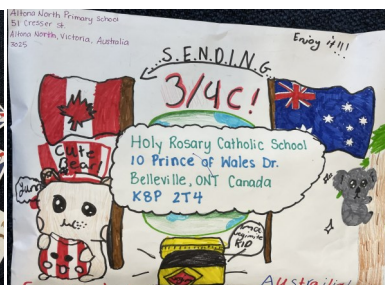 Altona North Primary School
51 Cresser St.
Altona North, Victoria, Australia
3025
Enjoy it!!!
S.E.N.D.I.N.G
3/4C!
Cute
Bear!
Holy Rosary Catholic School
10 Prince of Wales Dr.
Belleville, ONT Canada
K8P 2T4
RIP